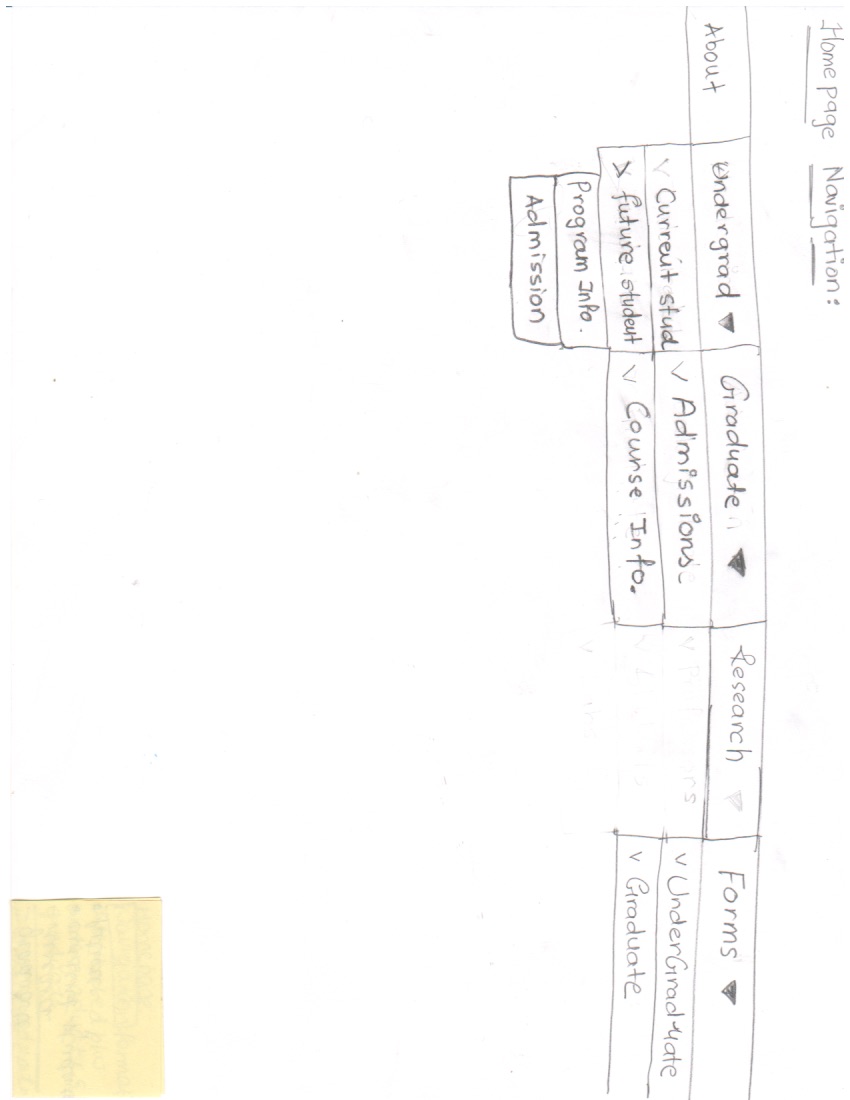 Homepage Navigation:
About
Undergrad ▼
v Current stud
> future student
Program Info.
Admission
Graduate ▼
v Admissions
v Course Info.
Research
Forms ▼
v UnderGraduate
v Graduate